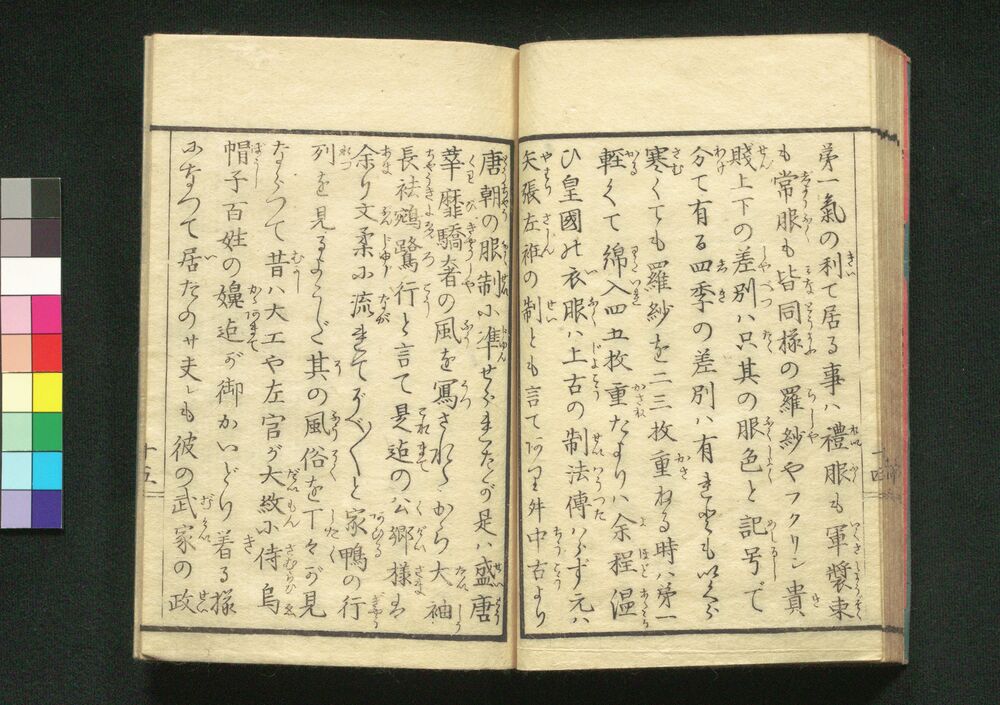 第一氣の利て居る事ハ禮服も軍裝束
も常服も皆同様の羅紗やフクリン貴
賤上下の差別ハ只其の服色と記号で
分て有る四季の差別ハ有れども以くら
寒くても羅紗を二三枚重ねる時ハ第一
軽くて綿入四五枚重たよりハ余程温
ひ皇國の衣服ハ上古の制法傳ハらず元ハ
矢張左袵の制とも言て
中古より
唐朝の服制に準せられたが是ハ盛唐
華靡驕奢の風を寫されたから大袖
長袪鵷鷺行と言て是迠の公郷様は
余り文柔に流れて
家鴨の行
列を見る
其の風俗を下々が見
ならつて昔ハ大工や左官が大紋に侍烏
帽子百姓の嬶迠が御かいどり着る様
になつて居たのサ夫レも彼の武家の政
十五